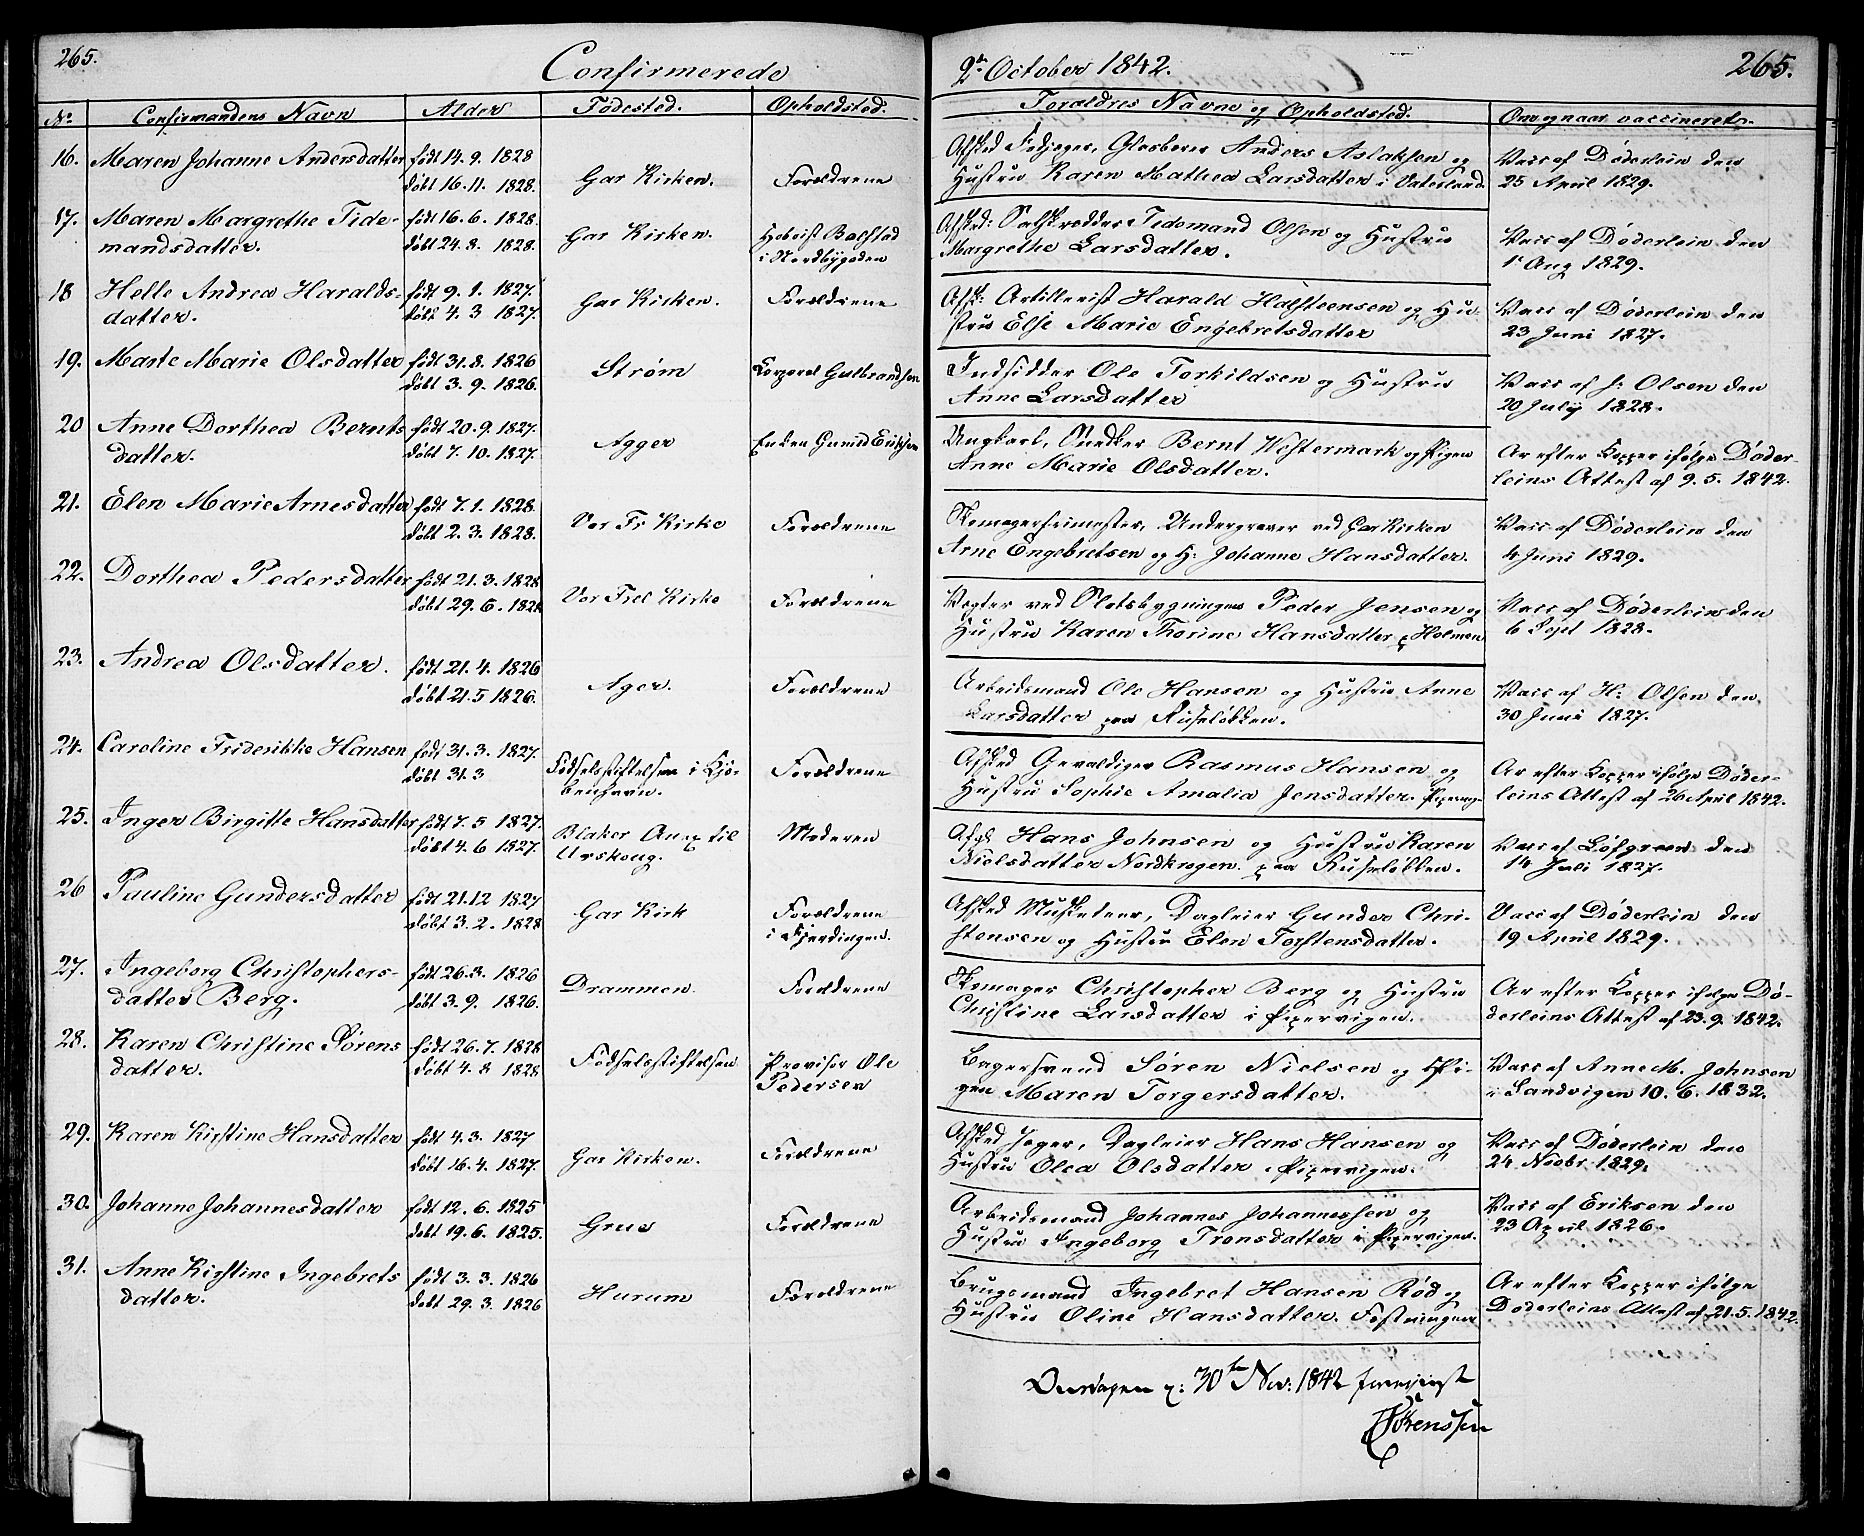 265.
Confirmerede
No Confirmandens Navn Alder Fødested. Opholdsted.
16. Maren Johanne Andersdatter født 14. 9. 1828 døbt 16. 11. 1828. Gar Kirken. Forældrene
17. Maren Margrethe Tide- født 16. 6. 1828. Gar Kirken. Balstad
mandsdatter. døbt 24. 8. 1828. i Nordbygden
18 Helle Andrea Haralds- født 9. 1. 1827. Gar Kirken. Forældrene
datter. døbt 4. 3 1827.
19. Marte Marie Olsdatter født 31. 8. 1826 Strøm Korporal Gulbrandsen
døbt 3. 9. 1826.
20 Anne Dorthea Bernts født 20. 9. 1827. Agger Enken Gunild Eriksen
datter. døbt 7. 10. 1827.
21. Elen Marie Arnesdatter født 7. 1. 1828. Vor Fr Kirke Forældrene
døbt 2. 3. 1828.
22. Dorthea Pedersdatter født 21. 3. 1828 Vor Frel Kirke Forældrene
døbt 29. 6. 1828
23. Andrea Olsdatter. født 21. 4. 1826 Ager. Forældrene
døbt 21. 5 1826.
24. Caroline Friderikke Hansen født 31. 3. 1827. Fødselsstiftelsen i Kjø- Forældrene
døbt 31. 3 benhavn.
25. Inger Birgitte Hansdatter født 7. 5 1827. Blaker Anex til Moderen
døbt 4. 6 1827. Urskoug.
26 Pauline Gundersdatter født 21. 12 1827 Gar Kirk Forældrene
døbt 3. 2. 1828 i Fjerdingen.
27. Ingeborg Christophers- født 26. 3. 1826 Drammen. Forældrene
datter Berg. døbt 3. 9. 1826.
28. Karen Christine Sørens født 26. 7. 1828 Fødselsstiftelsen Provisor Ole
datter. døbt 4. 8 1828. Pedersen
29. Karen Kirstine Hansdatter født 4. 3. 1827 Gar Kirken. Forældrene
døbt 16. 4. 1827.
30. Johanne Johannesdatter født 12. 6. 1825 Grue Forældrene
døbt 19. 6. 1825.
31. Anne Kirstine Ingebrets født 3. 3. 1826 Hurum Forældrene
datter. døbt 29. 3. 1826
2den October 1842. 265.
Forældres Navne og Opholdsted. Om og naar vaccineret.
Afsked Feltjæger, Anders Aslaksen og Vacc af Døderlein den
Hustru Karen Mathea Larsdatter i Vaterland 25 April 1829.
Afsked: Tidemand Olsen og Hustru Vacc af Døderlein den
Margrethe Larsdatter. 1ste Aug 1829.
Afsk: Artillerist Harald Halsteensen og Hu- Vacc af Døderlein den
stru Else Marie Engebretsdatter 23 Juni 1827.
Indsidder Ole Torkildsen og Hustru Vacc af J: Olsen den
Anne Larsdatter 20 July 1828.
Ungkarl, Snedker Bernt Westermark og Pigen Ar efter Kopper ifølge Døder-
Anne Marie Olsdatter. leins Attest af 9. 5. 1842.
Skomagersvendmester, Undergraver ved Gar Kirken Vacc af Døderlein den
Arne Engebretsen og H: Johanne Hansdatter. 4 Juni 1829.
Vægter ved Slotsbygningen Peder Jensen og Vacc af Døderlein den
Hustru Karen Thorine Hansdatter p Holmen 6 Sept 1828.
Arbeidsmand Ole Hansen og Hustru Anne Vacc af H: Olsen den
Larsdatter paa Ruseløkken. 30 Juni 1827.
Afsked Gevaldiger Rasmus Hansen og Ar efter Kopper ifølge Døder-
Hustru Sophie Amalia Jensdatter. Piperv. leins Attest af 26 April 1842.
Afsk Hans Johnsen og Hustru Karen Vacc af Løfgreen den
Nielsdatter Nordkrogen. paa Ruseløkken. 14 Juli 1827.
Afsked Musketeer, Dagleier Gunder Chri- Vacc af Døderlein den
stensen og Hustru Elen Torstensdatter. 19 April 1829.
Skomager Christopher Berg og Hustru Ar efter Kopper ifølge Dø-
Christine Larsdatter i Pipervigen. derleins Attest af 23. 9. 1842.
Bagersvend Søren Nielsen og Pi- Vacc af Anne M. Johnsen
gen Maren Torgersdatter. i Sandvigen 10. 6. 1832.
Afsked Jæger, Dagleier Hans Hansen og Vacc af Døderlein den
Hustru Olea Olsdatter i Pipervigen. 24 Novbr. 1829.
Arbeidsmand Johannes Johannessen og Vacc af Eriksen den
Hustru Ingeborg Tronsdatter i Pipervigen. 23 April 1826.
Brugsmand Ingebret Hansen Rød og Ar efter Kopper ifølge
Hustru Oline Hansdatter. Fæstningen Døderleins Attest af 21. 5. 1842.
30te Nov: 1842 foreviist
Sørenssen